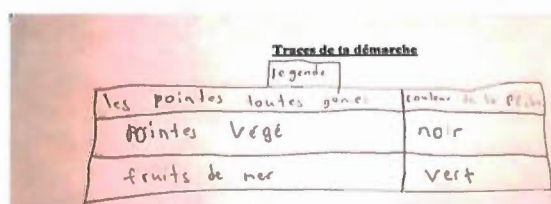 Traces de ta démarche
legende
les pointes toutes garnies couleur de la
pointes végé noir
fruits de mer vert